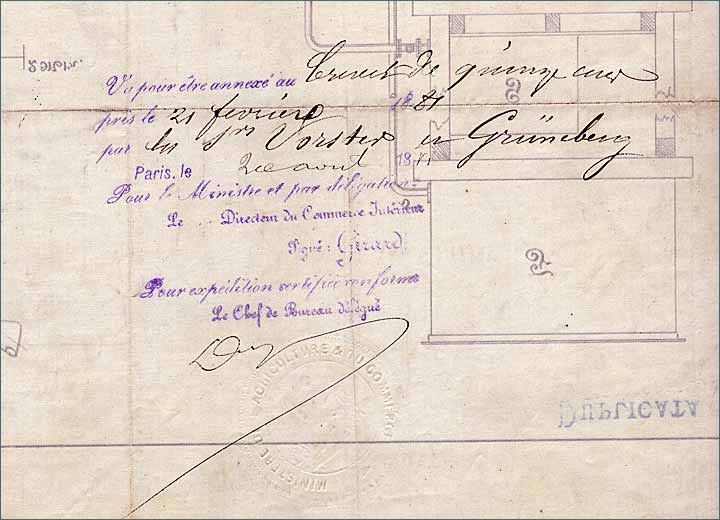 Vu pour être annexé au Brevet de quinze ans
pris le 21 février 1881
par les Srs Vorster et Grüneberg
Paris, le 18
Pour le Ministre et par délégation:
Le Directeur du Commerce Intérieur
Signé: Girard
Pour expédition certifiée conforme
Le Chef de Bureau délégué
MINISTERE D AGRICULTURE & DU COMMERCE
DUPLICATA